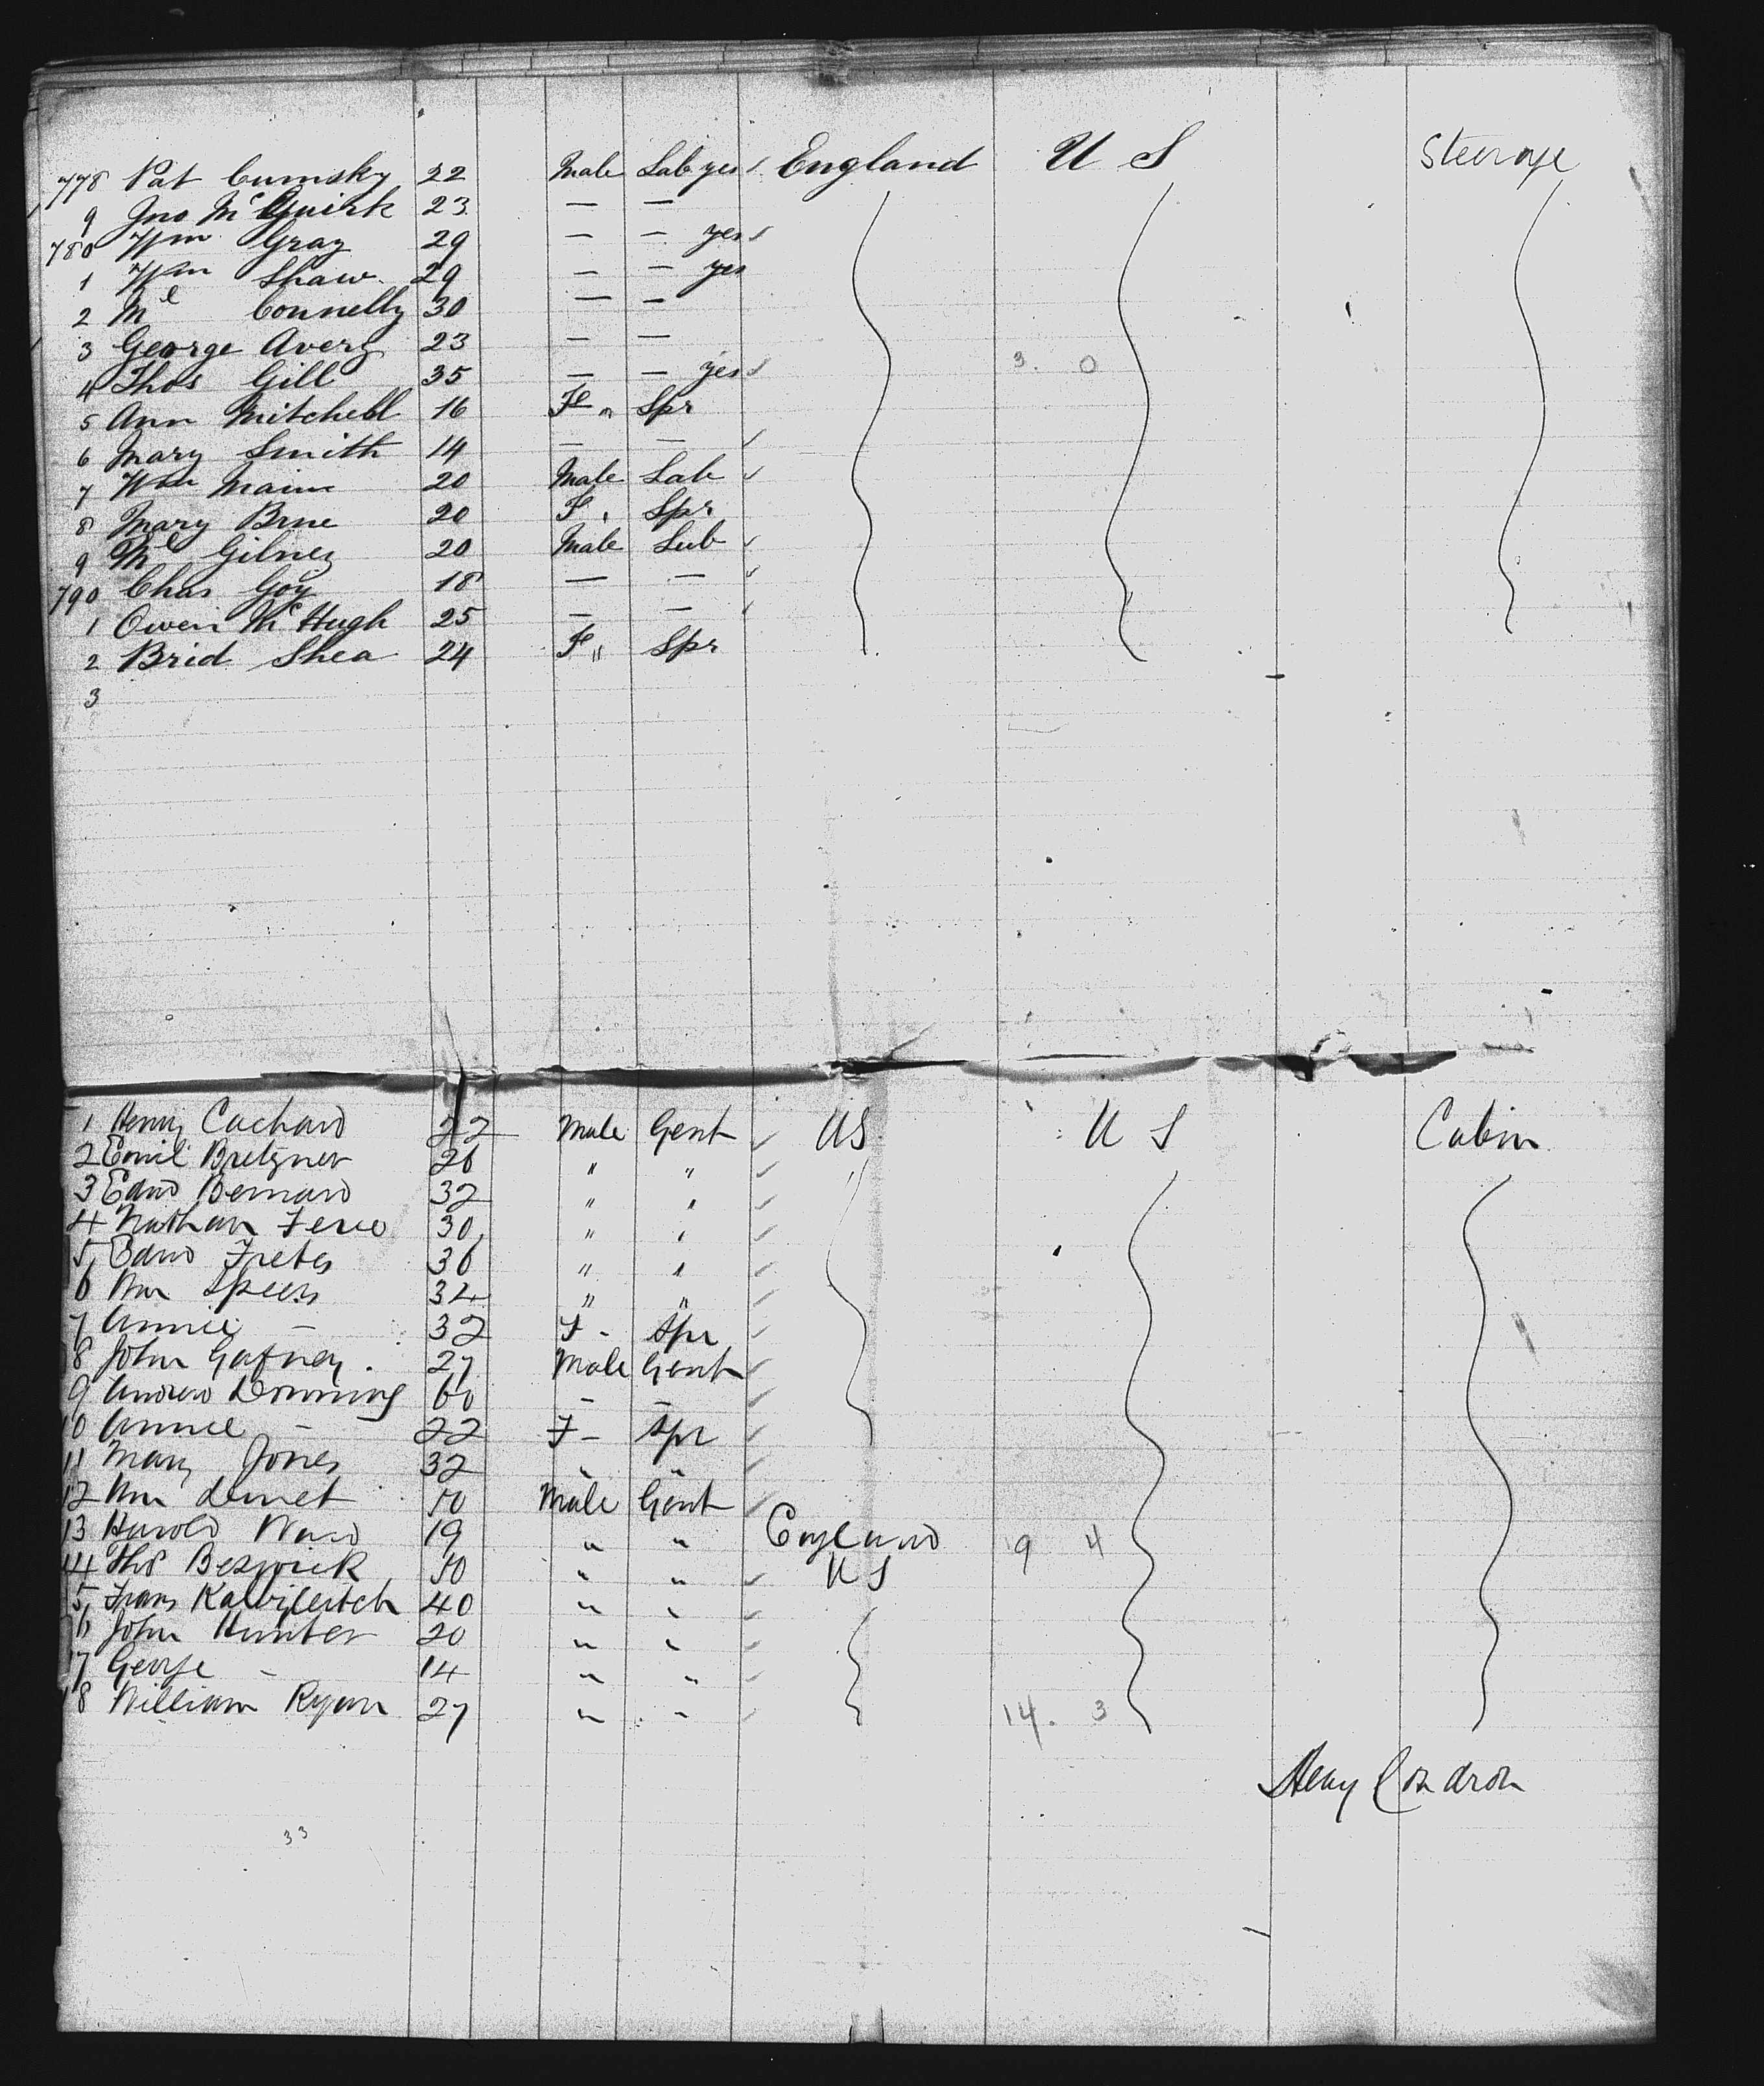 778 Pat Cumsky 22 Male Lab yes England U S Steerage
9 Jno McGuirk 23 — —
780 Wm Gray 29 — — yes
1 Wm Shaw 29 — — yes
2 Ml Connelly 30 — —
3 George Avery 23 — —
4 Thos Gill 35 — — yes 3. 0
5 Ann Mitchell 16 Fe " Spr
6 Mary Smith 14 — —
7 Wm Maim 20 Male Lab
8 Mary Brne 20 F " Spr
9 Ml Gilney 20 Male Lab
790 Chas Goy 18 — —
1 Owen McHugh 25 — —
2 Brid Shea 24 F " Spr
3
1 Henry Cachard 22 Male Gent US U S Cabin
2 Emil Bretzner 26 " "
3 Edwd Bernard 32 " "
4 Nathan 30 " "
5 Edwd Fretes 36 " "
6 Wm Speers 34 " "
7 Annie — 32 F - Spr
8 John Gafney 27 Male Gent
9 Andrew 60 — —
10 Annie — 22 F - Spr
11 Mary Jones 32 " "
12 Wm 50 Male Gent
13 Harold Ward 19 " " England 9 4
14 Thos Beswick 50 " " U S
15 Frans 40 " "
16 John Hunter 20 " "
17 George — 14 " "
18 William Ryan 27 " " 14. 3
Henry Condron
33